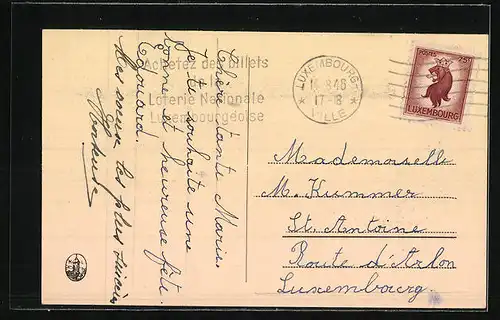 Achetez des billets
de la
Loterie Nationale
Luxembourgeoise
LUXEMBOURG
14-8-46
17-18
VILLE
POSTES 75c
LUXEMBOURG
Chère tante Marie,
Je te souhaite une
bonne et heureuse fête.
Edouard.
Mes voeux les plus sincères
Mademoiselle
M. Kummer
St. Antoine
Route d'Arlon
Luxembourg.